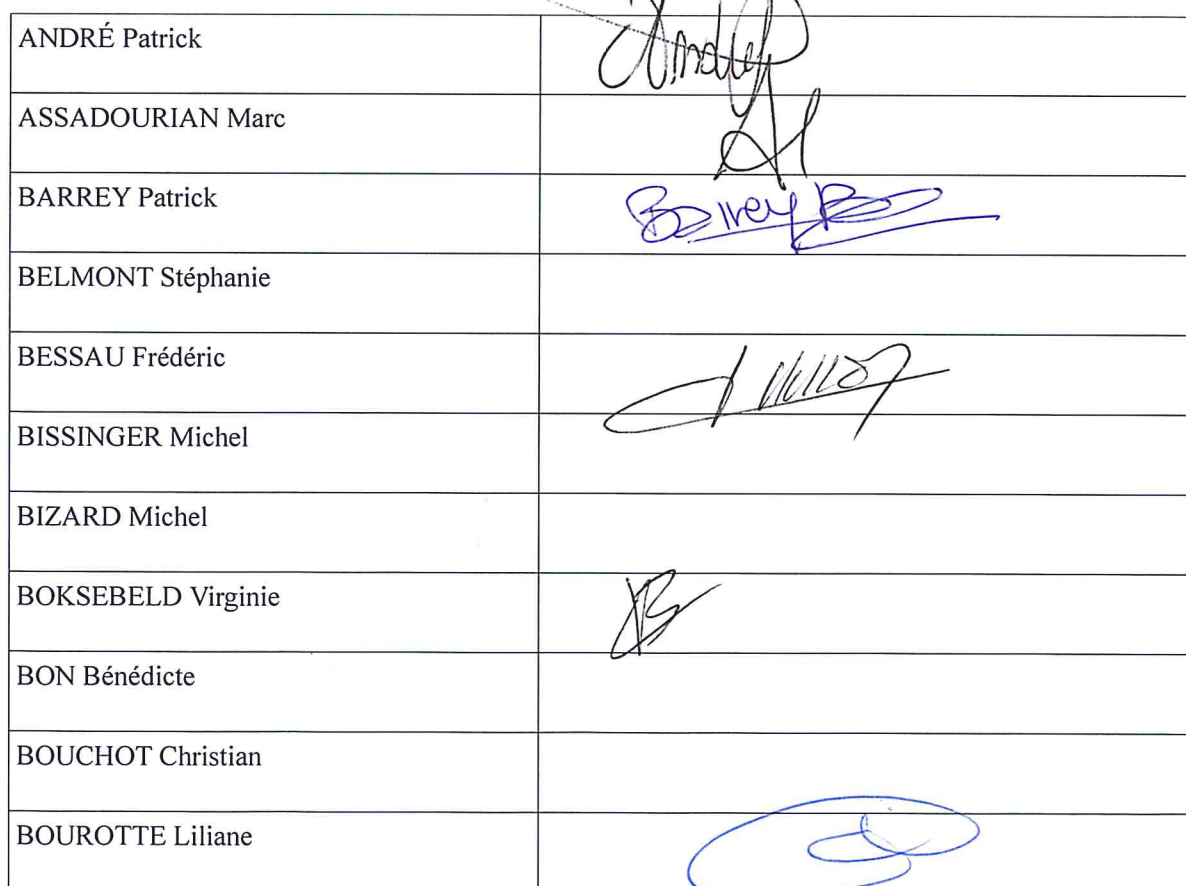 ANDRÉ Patrick
ASSADOURIAN Marc
BARREY Patrick
Barrey
BELMONT Stéphanie
BESSAU Frédéric
BISSINGER Michel
BIZARD Michel
BOKSEBELD Virginie
BON Bénédicte
BOUCHOT Christian
BOUROTTE Liliane